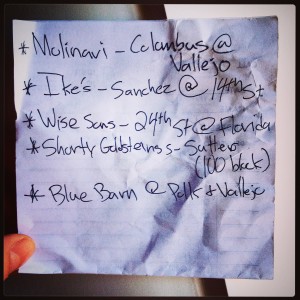 * Molinari - Columbus @
Vallejo
* Ike's - Sanchez @ 14th St
* Wise Sons - 24th St @ Florida
* Shorty Goldstein's - Sutter
(100 block)
* Blue Barn @ Polk & Vallejo